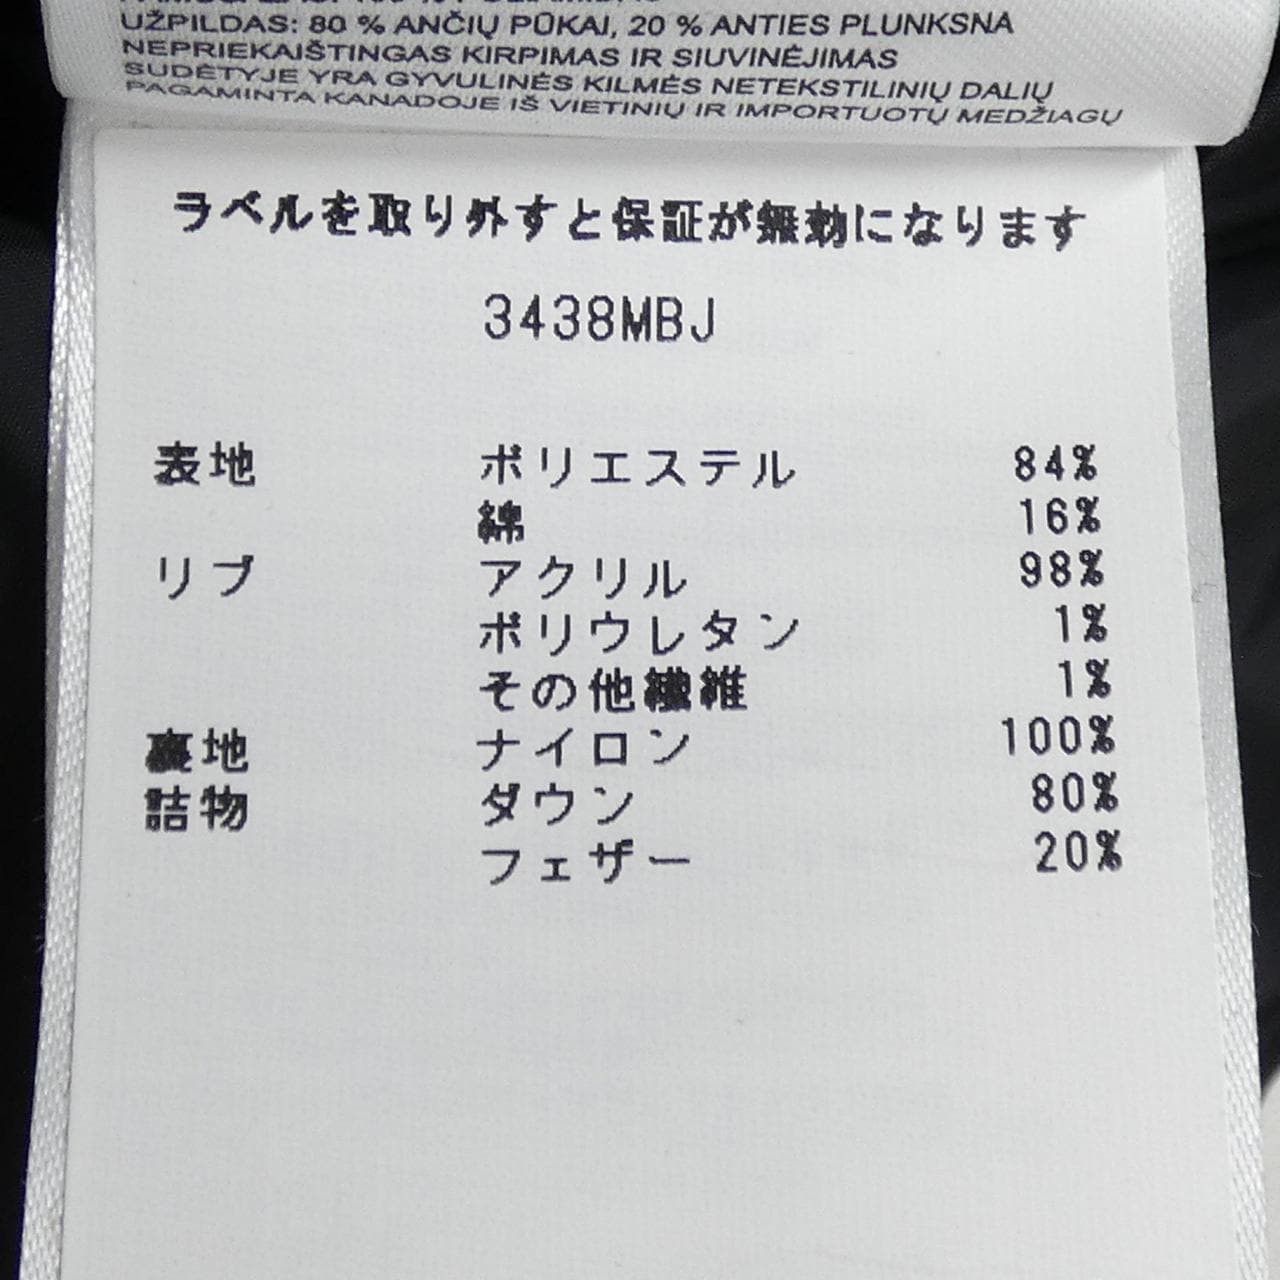 UŽPILDAS: 80 % ANČIŲ PŪKAI, 20 % ANTIES PLUNKSNA
NEPRIEKAIŠTINGAS KIRPIMAS IR SIUVINĖJIMAS
SUDĖTYJE YRA GYVULINĖS KILMĖS NETEKSTILINIŲ DALIŲ
PAGAMINTA KANADOJE IŠ VIETINIŲ IR IMPORTUOTŲ MEDŽIAGŲ
ラベルを取り外すと保証が無効になります
3438MBJ
表地 ポリエステル 84%
綿 16%
リブ アクリル 98%
ポリウレタン 1%
その他繊維 1%
裏地 ナイロン 100%
詰物 ダウン 80%
フェザー 20%